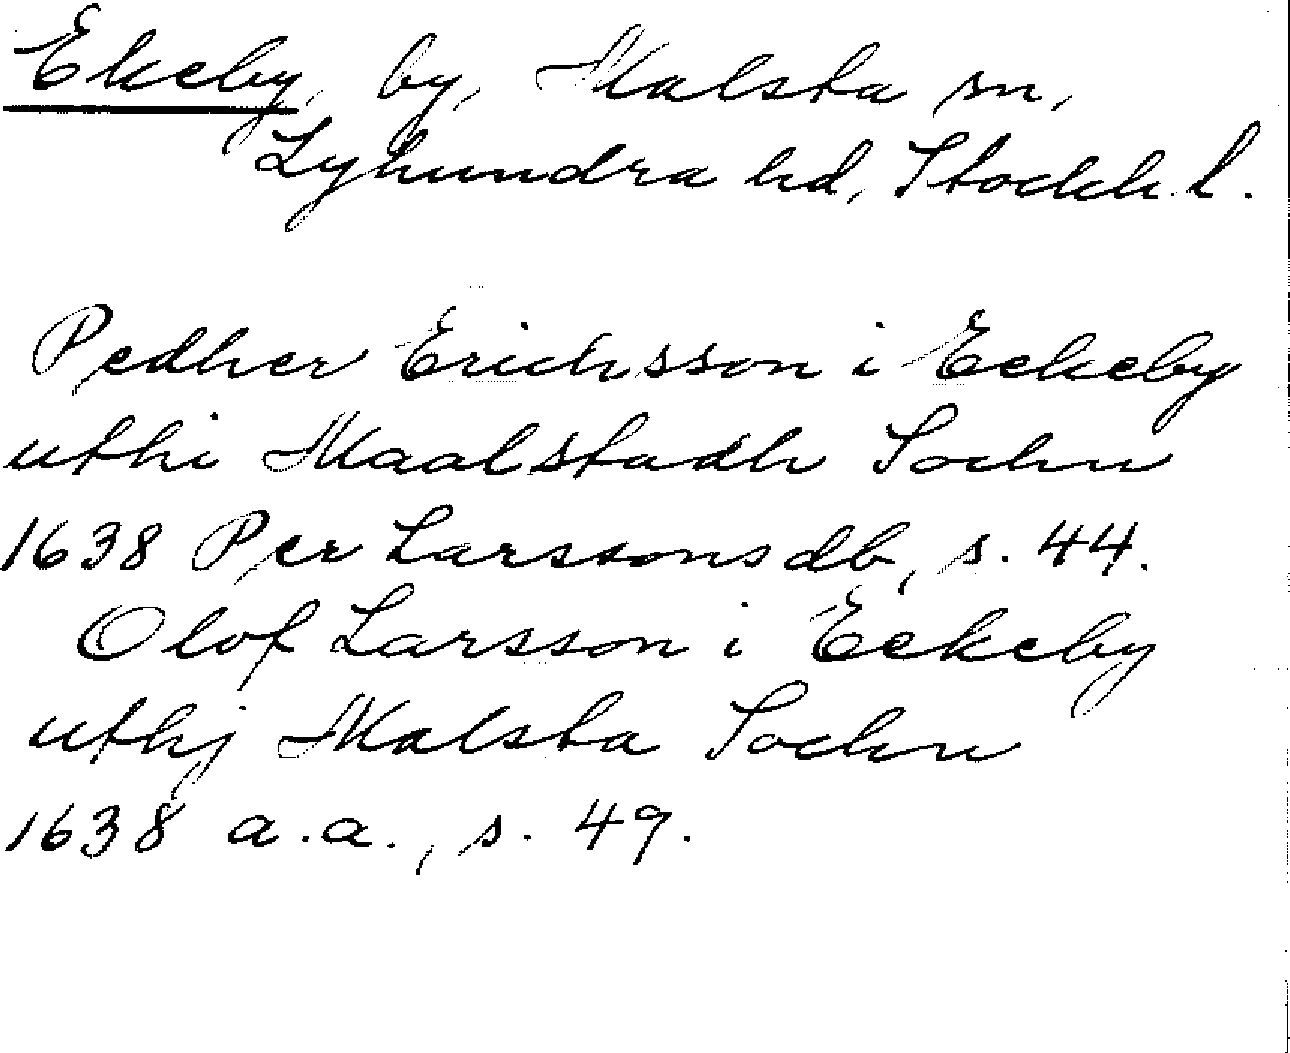 Ekeby, by, Malsta sn,
Lyhundra hd, Stockh. l.
Pedher Erichsson i Eekeby
uthi Maalstadh Sochn
1638 Per Larssons db, s. 44.
Olof Larsson i Eekeby
uthj Malsta Sochn
1638 a.a., s. 49.